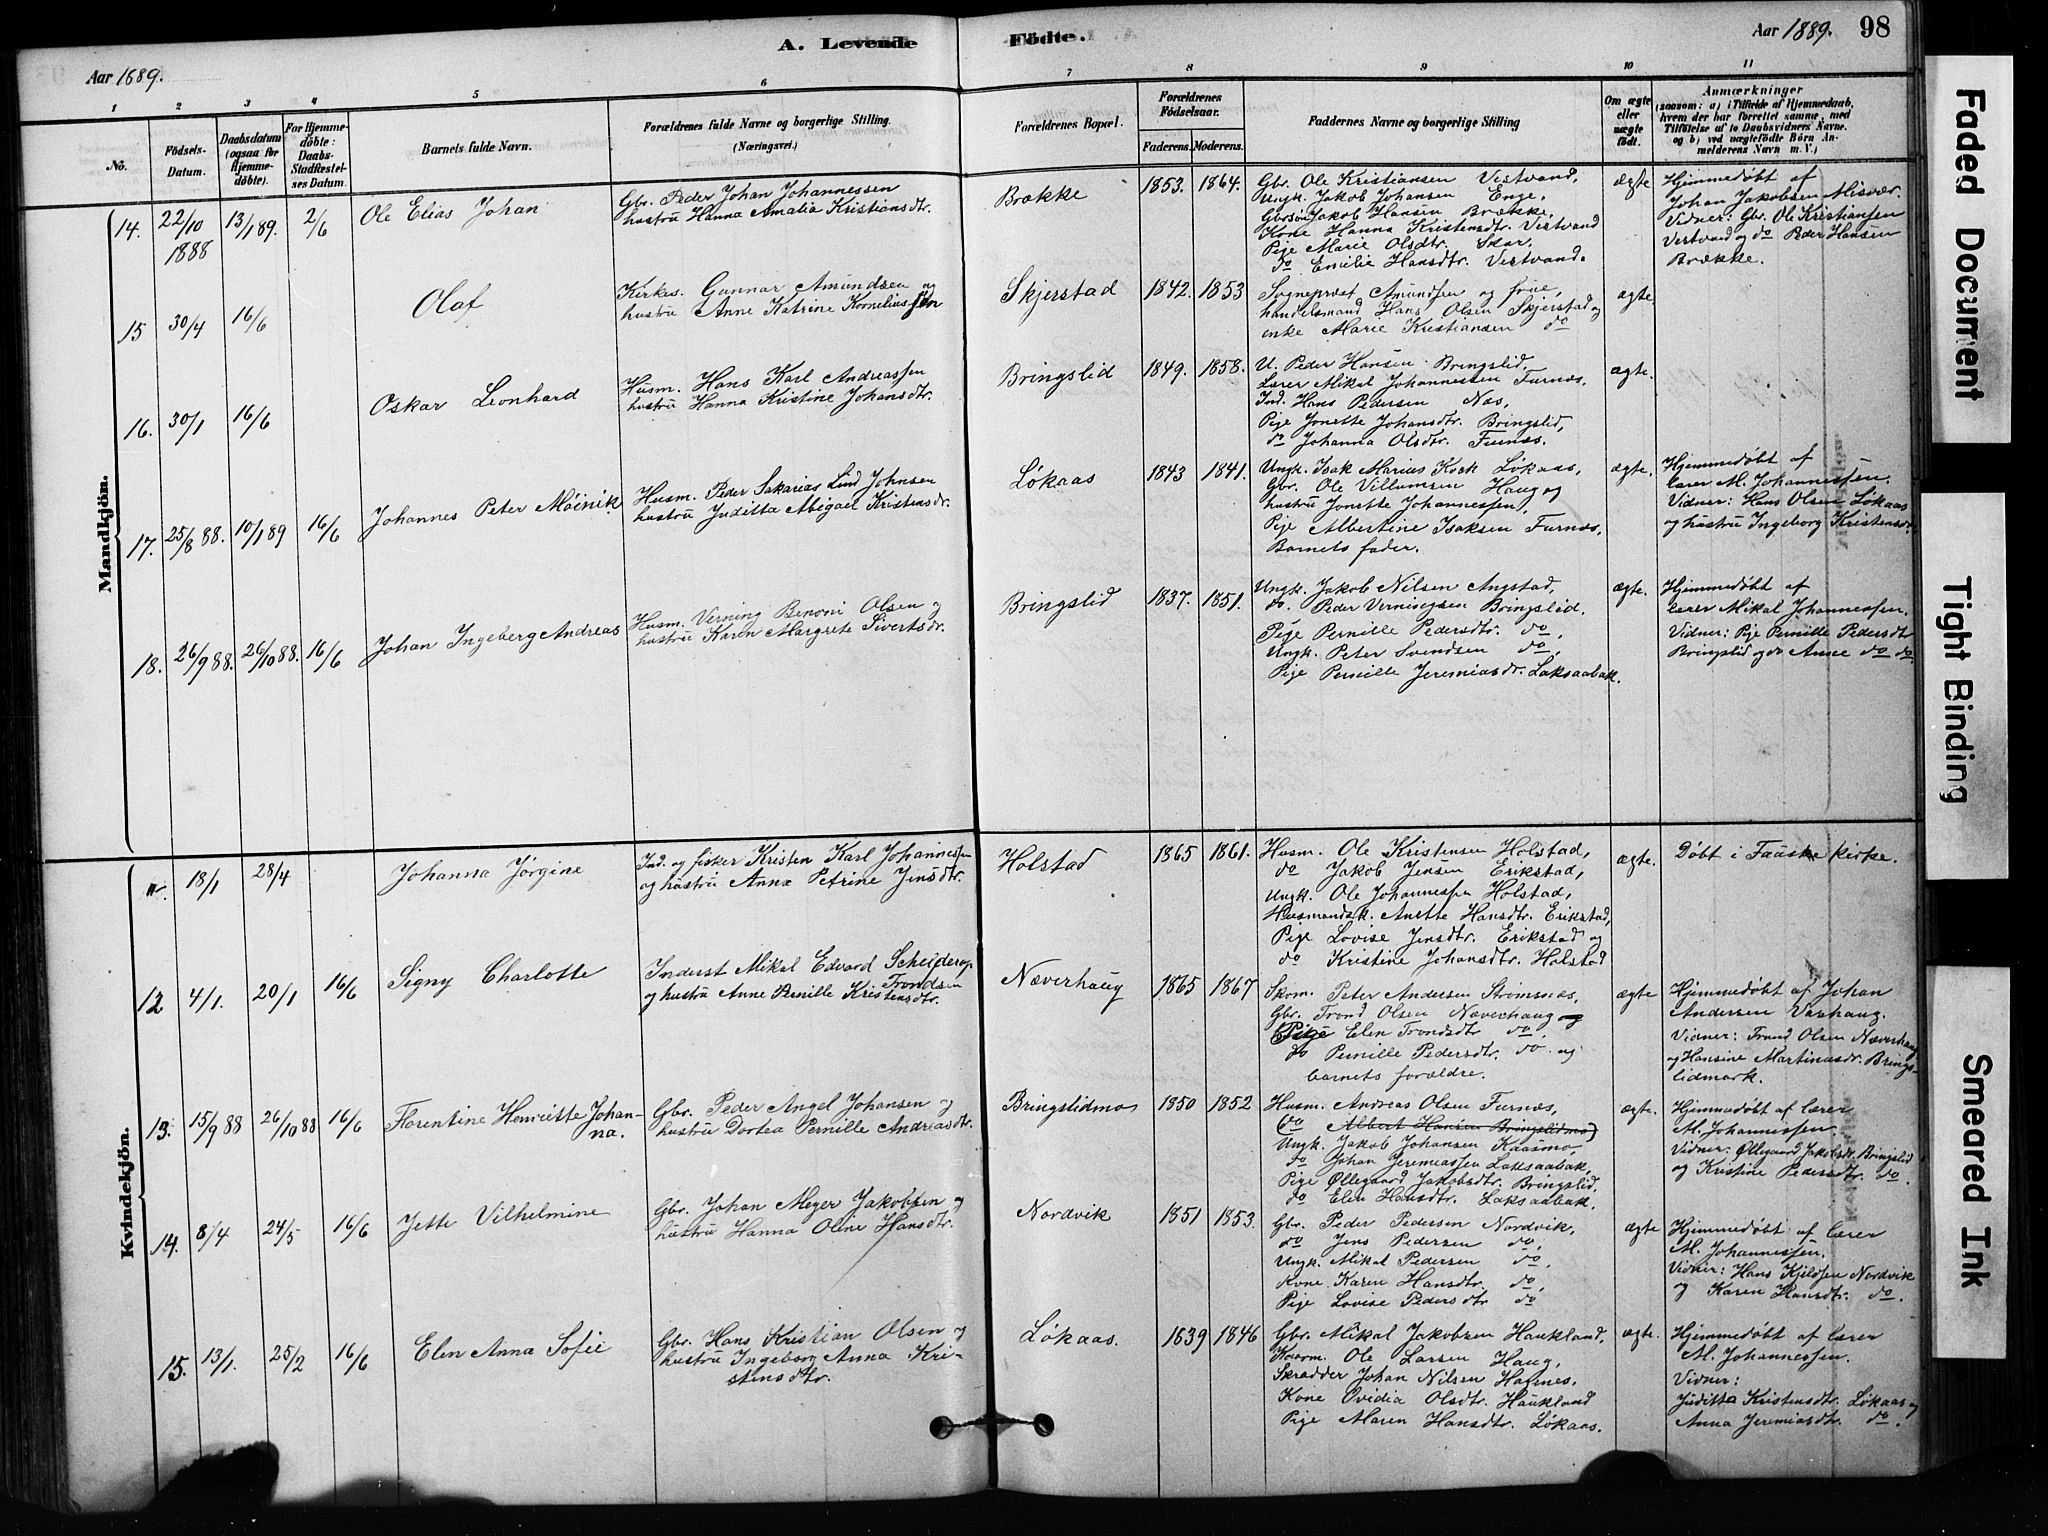 A. Levende Födte.
Aar 1889.
Aar 1889. 98
1 2 3 4 5 6 7 8 9 10 11
No.
Födsels-
Datum.
Daabsdatum
(ogsaa for
Hjemme-
döbte).
For Hjemme-
döbte:
Daabs-
Stadfæstel-
ses Datum.
Barnets fulde Navn.
Forældrenes fulde Navne og borgerlige Stilling.
(Næringsvei.)
Forældrenes Bopæl.
Forældrenes
Födselsaar.
Faderens. Moderens.
Faddernes Navne og borgerlige Stilling
Om ægte
eller
uægte
födt.
Anmærkninger
(saasom: a) i Tilfælde af Hjemmedaab,
hvem der har forrettet samme, med
Tilföielse af to Daabsvidners Navne.
og b) ved uægtefödte Börn An-
melderens Navn m. V.)
Mandkjön.
14. 22/10 1888 13/1 89. 2/6 Ole Elias Johan
Gbr. Peder Johan Johannessen
hustru Hanna Amalia Kristiansdtr.
Brække 1853. 1864.
Gbr. Ole Kristiansen Vestvand,
Ungk. Jakob Johansen Enge,
Gbrsøn Jakob Hansen Brække,
Kone Hanna Kristensdtr. Vestvand
Pige Marie Olsdtr. Skar.
do Emilie Hansdtr. Vestvand.
ægte
Hjemmedøbt af
Johan Jakobsen Misvær.
Vidner: Gbr. Ole Kristiansen
Vestvand og do Peder Hansen
Brække.
15 30/4 16/6 Olaf
Kirkes. Gunnar Amundsen og
hustru Anne Katrine Korneliussen
Skjerstad 1842. 1853
Sogneprest Amundsen og frue,
handelsmand Hans Olsen Skjerstad og
enke Marie Kristiansen do
ægte.
16. 30/1 16/6 Oskar Leonhard
Husm. Hans Karl Andreassen
hustru Hanna Kristine Johansdtr.
Bringslid 1849. 1858.
U. Peder Hansen Bringslid,
Lærer Mikal Johannessen Furnæs,
Ind. Hans Pedersen Næs,
Pige Jonette Johansdtr. Bringslid,
do Johanna Olsdtr. Furnæs.
ægte.
17. 25/8 88. 10/1 89 16/6 Johannes Peter Møinik
Husm. Peder Sakarias Lind Johnsen
hustru Juditta Abigael Kristensdr.
Løkaas 1843 1841.
Ungk. Isak Marius Koch Løkaas,
Gbr. Ole Villumsen Haug og
hustru Jonette Johannessen,
Pige Albertine Isaksen Furnæs,
Barnets fader.
ægte.
Hjemmedøbt af
lærer M. Johannessen.
Vidner: Hans Olsen Løkaas
og hustru Ingeborg Kristensdr.
18. 26/9 88. 26/10 88. 16/6 Johan Ingeberg Andreas
Husm. Verning Benoni Olsen og
hustru Karen Margrete Sivertsdr.
Bringslid 1837. 1851.
Ungk. Jakob Nilsen Angstad,
do. Peder Verningsen Bringslid.
Pige Pernille Pedersdtr. do,
Ungk. Peter Svendsen do,
Pige Pernille Jeremiasdr. Laksaabak.
ægte.
Hjemmedøbt af
lærer Mikal Johannessen.
Vidner: Pige Pernille Pedersdtr
Bringslid og do Anne do do
Kvindekjön.
11. 18/1 28/4 Johanna Jørgine
Ind. og fisker Kristen Karl Johannessen
og hustru Anna Petrine Jensdtr.
Holstad 1865 1861.
Husm. Ole Kristensen Holstad,
do Jakob Jensen Erikstad,
Ungk. Ole Johannessen Holstad,
Husmandsk. Anette Hansdtr. Erikstad,
Pige Lovise Jensdtr. Erikstad og
do Kristine Johansdtr. Holstad
ægte.
Døbt i Fauske kirke.
12 4/1. 20/1 16/6 Signy Charlotte
Inderst Mikal Edvard Schelderop
Trondsen
og hustru Anne Pernille Kristensdtr.
Næverhaug 1865 1867
Skom. Peter Andersen Strømsnæs,
Gbr. Trond Olsen Næverhaug og
Pige Elen Trondsdtr do,
do Pernille Pedersdtr. do. og
barnets forældre.
ægte
Hjemmedøbt af Johan
Andersen Vashaug.
Vidner: Trond Olsen Næverhaug
og Hansine Martinusdr. Brings-
lidmark.
13. 15/9 88 26/10 88 16/6 Florentine Henriette Johan-
na.
Gbr. Peder Angel Johansen og
hustru Dortea Pernille Andreasdtr.
Bringslidmo 1850 1852
Husm. Andreas Olsen Furnæs,
(do Albert Hansen Bringslidmo)
Ungk. Jakob Johansen Kaasmo,
do Johan Jeremiassen Laksaabak,
Pige Øllegaard Jakobsdtr. Bringslid,
do Elen Hansdtr. Laksaabak.
ægte.
Hjemmedøbt af lærer
M. Johannessen.
Vidner: Øllegaard Jakobsdr. Bringslid
og Kristine Pedersdtr. do.
14. 8/4 24/5 16/6 Jette Vilhelmine
Gbr. Johan Meyer Jakobsen og
hustru Hanna Oline Hansdtr.
Nordvik 1851 1853.
Gbr. Peder Pedersen Nordvik,
do Jens Pedersen do,
Ungk. Mikal Pedersen do.
Kone Karen Hansdtr. do,
Pige Lovise Pedersdtr do
ægte
Hjemmedøbt af lærer
M. Johannessen.
Vidner: Hans Kjeldsen Nordvik
og Karen Hansdtr. do.
15. 13/1. 25/2 16/6 Elen Anna Sofie
Gbr. Hans Kristian Olsen og
hustru Ingeborg Anna Kri-
stensdtr.
Løkaas. 1839 1846
Gbr. Mikal Jakobsen Haukland,
Kaarm. Ole Larsen Haug,
Skrædder Johan Nilsen Hafnes,
Kone Ovidia Olsdtr. Haukland
Pige Maren Hansdtr. Løkaas.
ægte.
Hjemmedøbt af lærer
M. Johannessen.
Vidner:
Juditta Kristensdtr. Løkaas og
Anna Jeremiasdtr. do.
Faded Document
Tight Binding
Smeared Ink